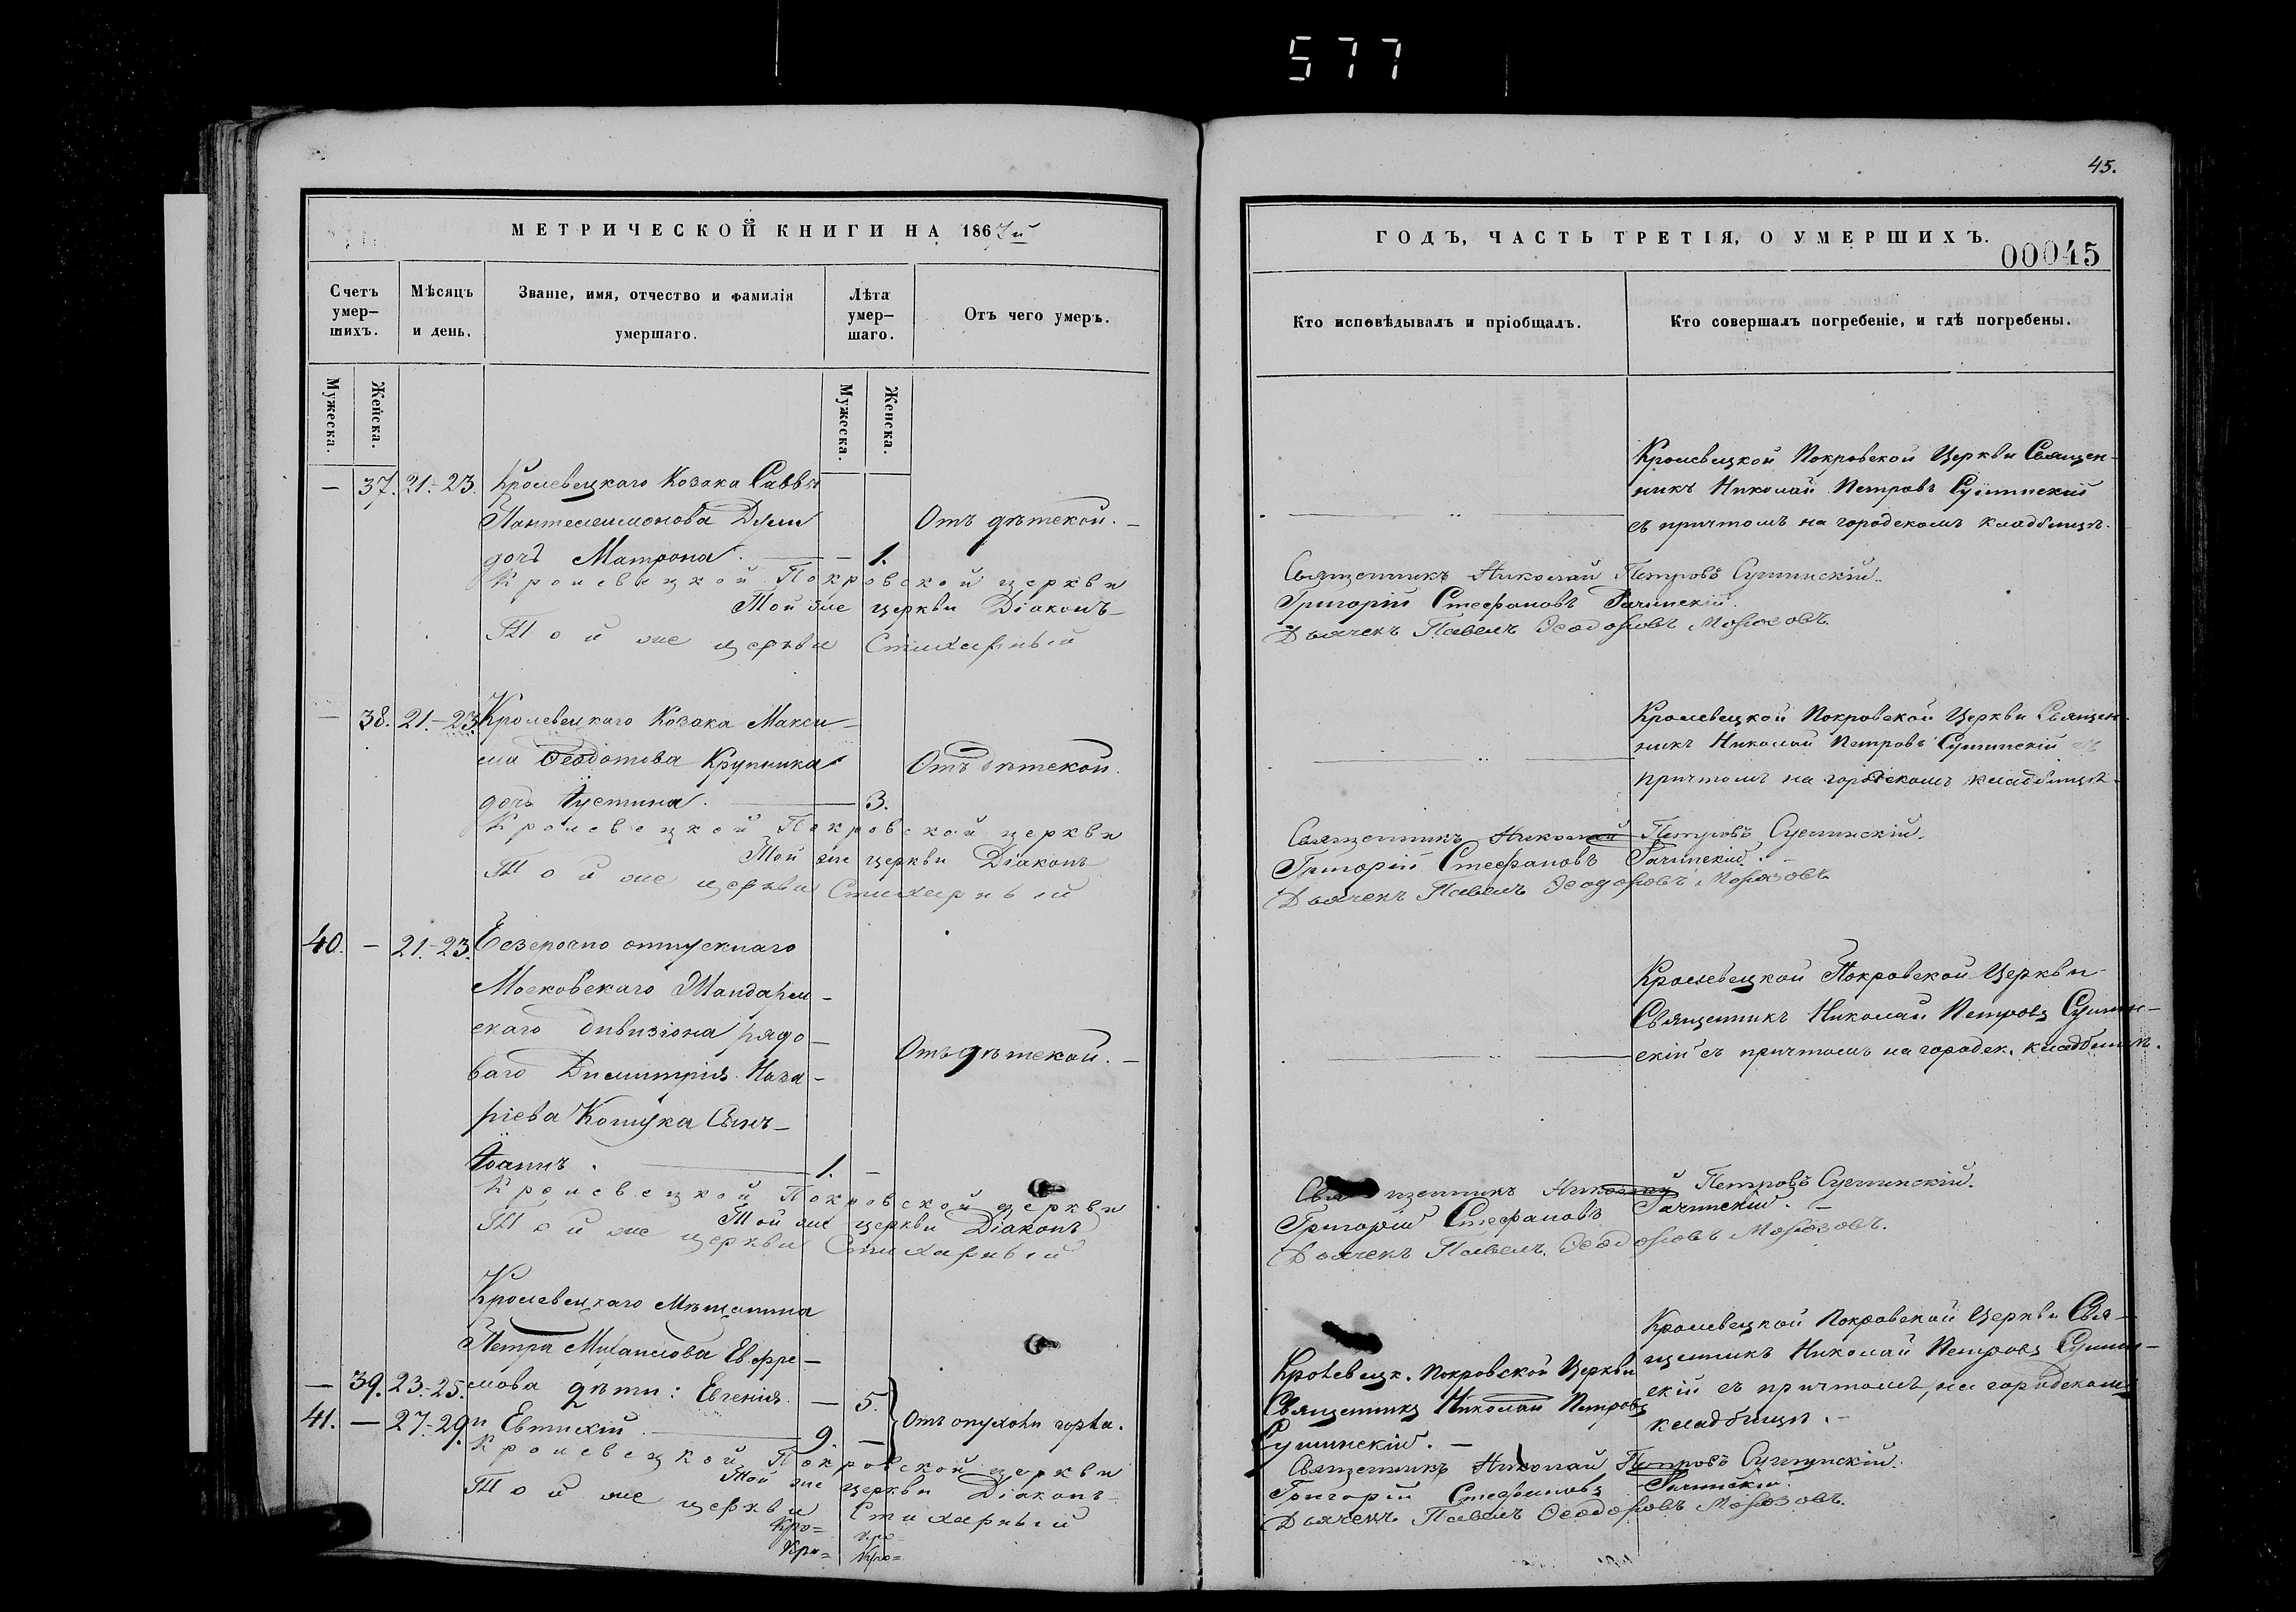 577
45.
МЕТРИЧЕСКОЙ КНИГИ НА 1867й
ГОДЪ, ЧАСТЬ ТРЕТІЯ, О УМЕРШИХЪ.
00045
Счетъ умер-
шихъ.
Мѣсяцъ
и день.
Званіе, имя, отчество и фамилія
умершаго.
Лѣта
умер-
шаго.
Отъ чего умеръ.
Кто исповѣдывалъ и пріобщалъ.
Кто совершалъ погребеніе, и гдѣ погребены.
Мужеска.
Женска.
Мужеска.
Женска.
— 37. 21.-23. Кролевецкаго Козака Саввы
Пантелеимонова
дочь Матрона. — 1.
Отъ дѣтской.
Кролевецкой Покровской Церкви Священ-
никъ Николай Петровъ
съ причтомъ на городскомъ кладбищѣ.
Кролевецкой Покровской церкви Священникъ Николай Петровъ
Той же церкви Діаконъ Григорій Стефановъ
Той же церкви Стихарный Дьячекъ Павелъ Ѳеодоровъ Морозовъ.
— 38. 21.-23. Кролевецкаго Козака Макси-
ма Ѳеодотова Крупника
дочь Іустина. — 3.
Отъ дѣтской.
Кролевецкой Покровской Церкви Священ-
никъ Николай Петровъ съ
причтомъ на городскомъ кладбищѣ.
Кролевецкой Покровской церкви Священникъ Николай Петровъ
Той же церкви Діаконъ Григорій Стефановъ
Той же церкви Стихарный Дьячекъ Павелъ Ѳеодоровъ Морозовъ.
40. — 21.-23. Безсрочно отпускнаго
Московскаго Жандарм-
скаго дивизіона рядо-
ваго Димитрія Наза-
ріева Сынъ
Іоаннъ. — 1. —
Отъ дѣтской. —
Кролевецкой Покровской Церкви
Священникъ Николай Петровъ
съ причтомъ на городск. кладбищѣ.
Кролевецкой Покровской церкви Священникъ Николай Петровъ
Той же церкви Діаконъ Григорій Стефановъ
Той же церкви Стихарный Дьячекъ Павелъ Ѳеодоровъ Морозовъ.
Кролевецкаго Мѣщанина
Петра Михаилова Евфре-
— 39. 23.-25. мова дѣти: Евгенія. — 5.
41. — 27.-29. и Евтихій. 9. —
Отъ опухоли горла.
Кролевецк. Покровской Церкви
Священникъ Николай Петровъ
Кролевецкой Покровской Церкви Свя-
щенникъ Николай Петровъ
съ причтомъ, на городскомъ
кладбищѣ.
Кролевецкой Покровской церкви Священникъ Николай Петровъ
Той же церкви Діаконъ Григорій Стефановъ
Той же церкви Стихарный Дьячекъ Павелъ Ѳеодоровъ Морозовъ.
Кро= Кро=
Кро= Кро=